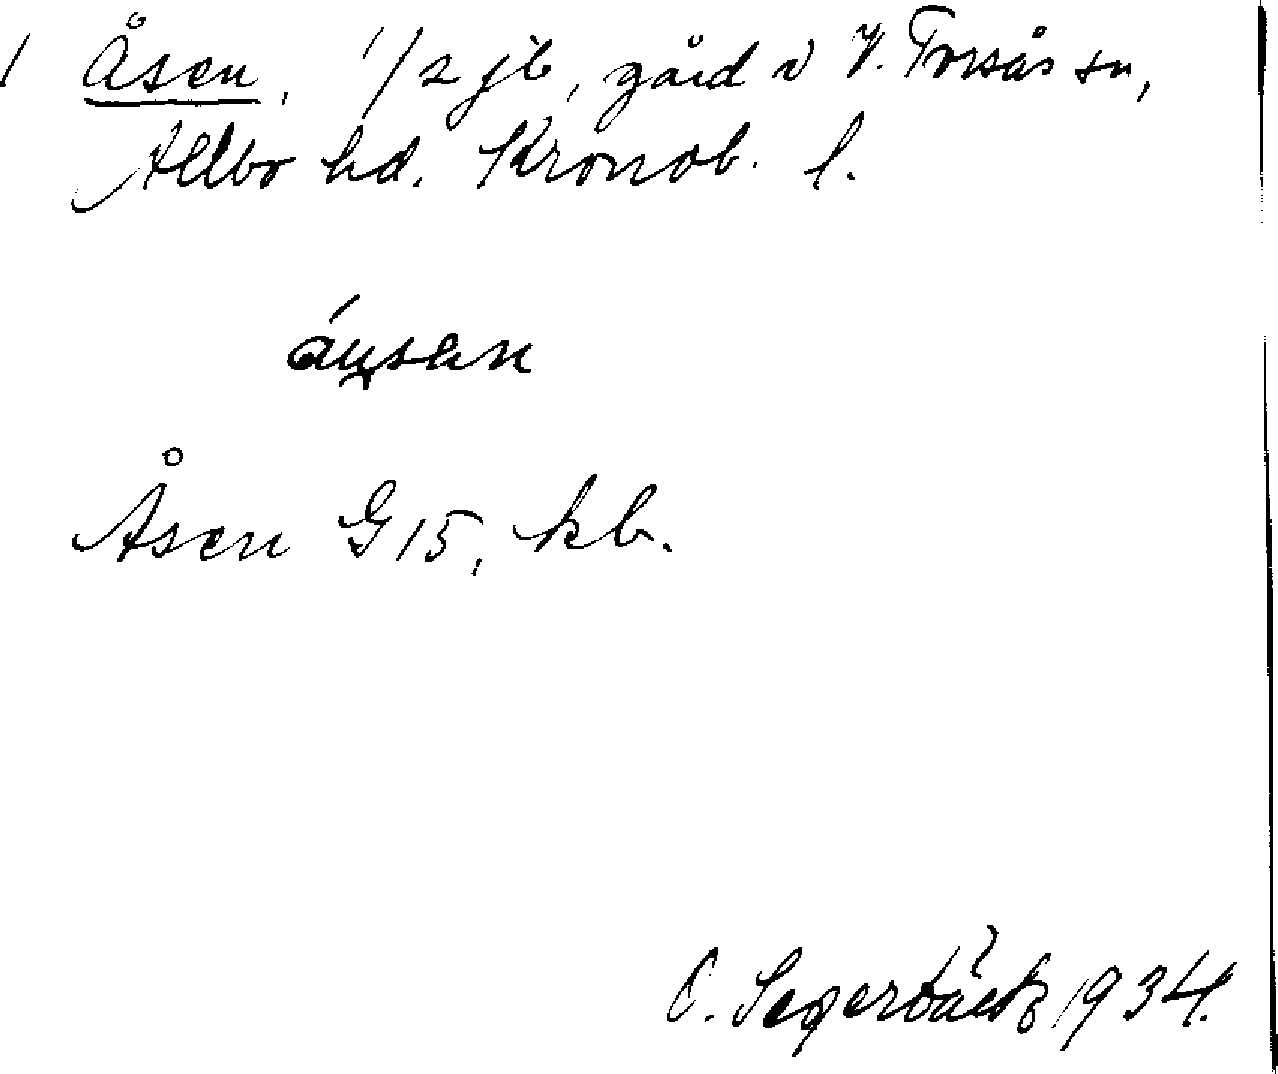 1 Åsen, 1/2 jb, gård i V. Torsås sn,
Allbo hd. Kronob. l.
Åsen G15, kb.
O. Segerbäck 1934.